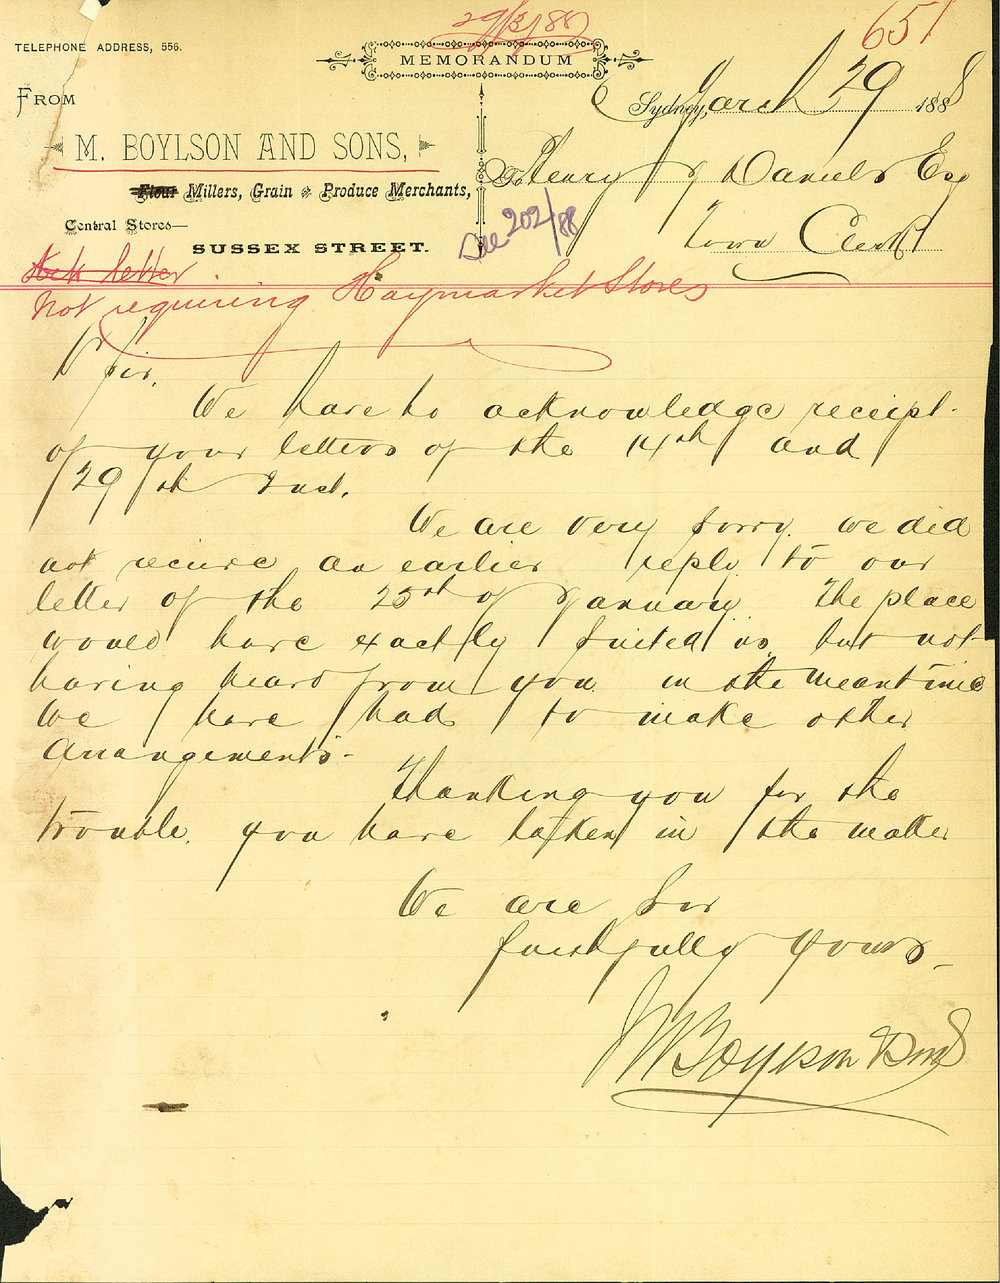 29/3/88
651
TELEPHONE ADDRESS, 556.
MEMORANDUM
FROM
Sydney, March 29 1888
M. BOYLSON AND SONS,
To Henry J Daniels Esq
Flour Millers, Grain & Produce Merchants,
Town Clerk
Central Stores—
SUSSEX STREET.
202/88
Ack letter
Not requiring Haymarket Stores
D Sir,
We have to acknowledge receipt
of your letters of the 14th and
29th Inst.
We are very sorry we did
not recieve an earlier reply to our
letter of the 25th of January The place
would have exactly suited us but not
having heard from you in the meantime
We have had to make other
arrangements-
Thanking you for the
trouble you have taken in the matter
We are Sir
faithfully yours
M Boylson & Sons